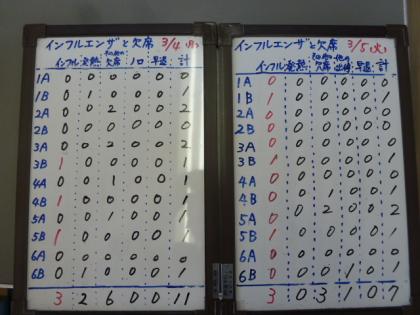 インフルエンザと欠席 3/4(月)
インフル 発熱 その他の欠席 ノロ 早退 計
1A 0 0 0 0 0 0
1B 0 1 0 0 0 1
2A 0 0 2 0 0 2
2B 0 0 0 0 0 0
3A 0 0 2 0 0 2
3B 1 0 0 0 0 1
4A 0 0 1 0 0 1
4B 1 0 0 0 0 1
5A 0 0 1 0 0 1
5B 1 0 0 0 0 1
6A 0 0 0 0 0 0
6B 0 1 0 0 0 1
3 2 6 0 0 11
インフルエンザと欠席 3/5(火)
インフル 発熱 その他の欠席 早退 計
1A 0 0 0 0 0 0
1B 1 0 0 0 0 1
2A 0 0 0 0 0 0
2B 0 0 0 0 0 0
3A 0 0 0 0 0 0
3B 1 0 0 0 0 1
4A 0 0 0 0 0 0
4B 0 0 1 0 0 1
5A 0 0 2 0 0 2
5B 1 0 0 0 0 1
6A 0 0 0 0 0 0
6B 0 0 0 1 0 1
3 0 3 1 0 7